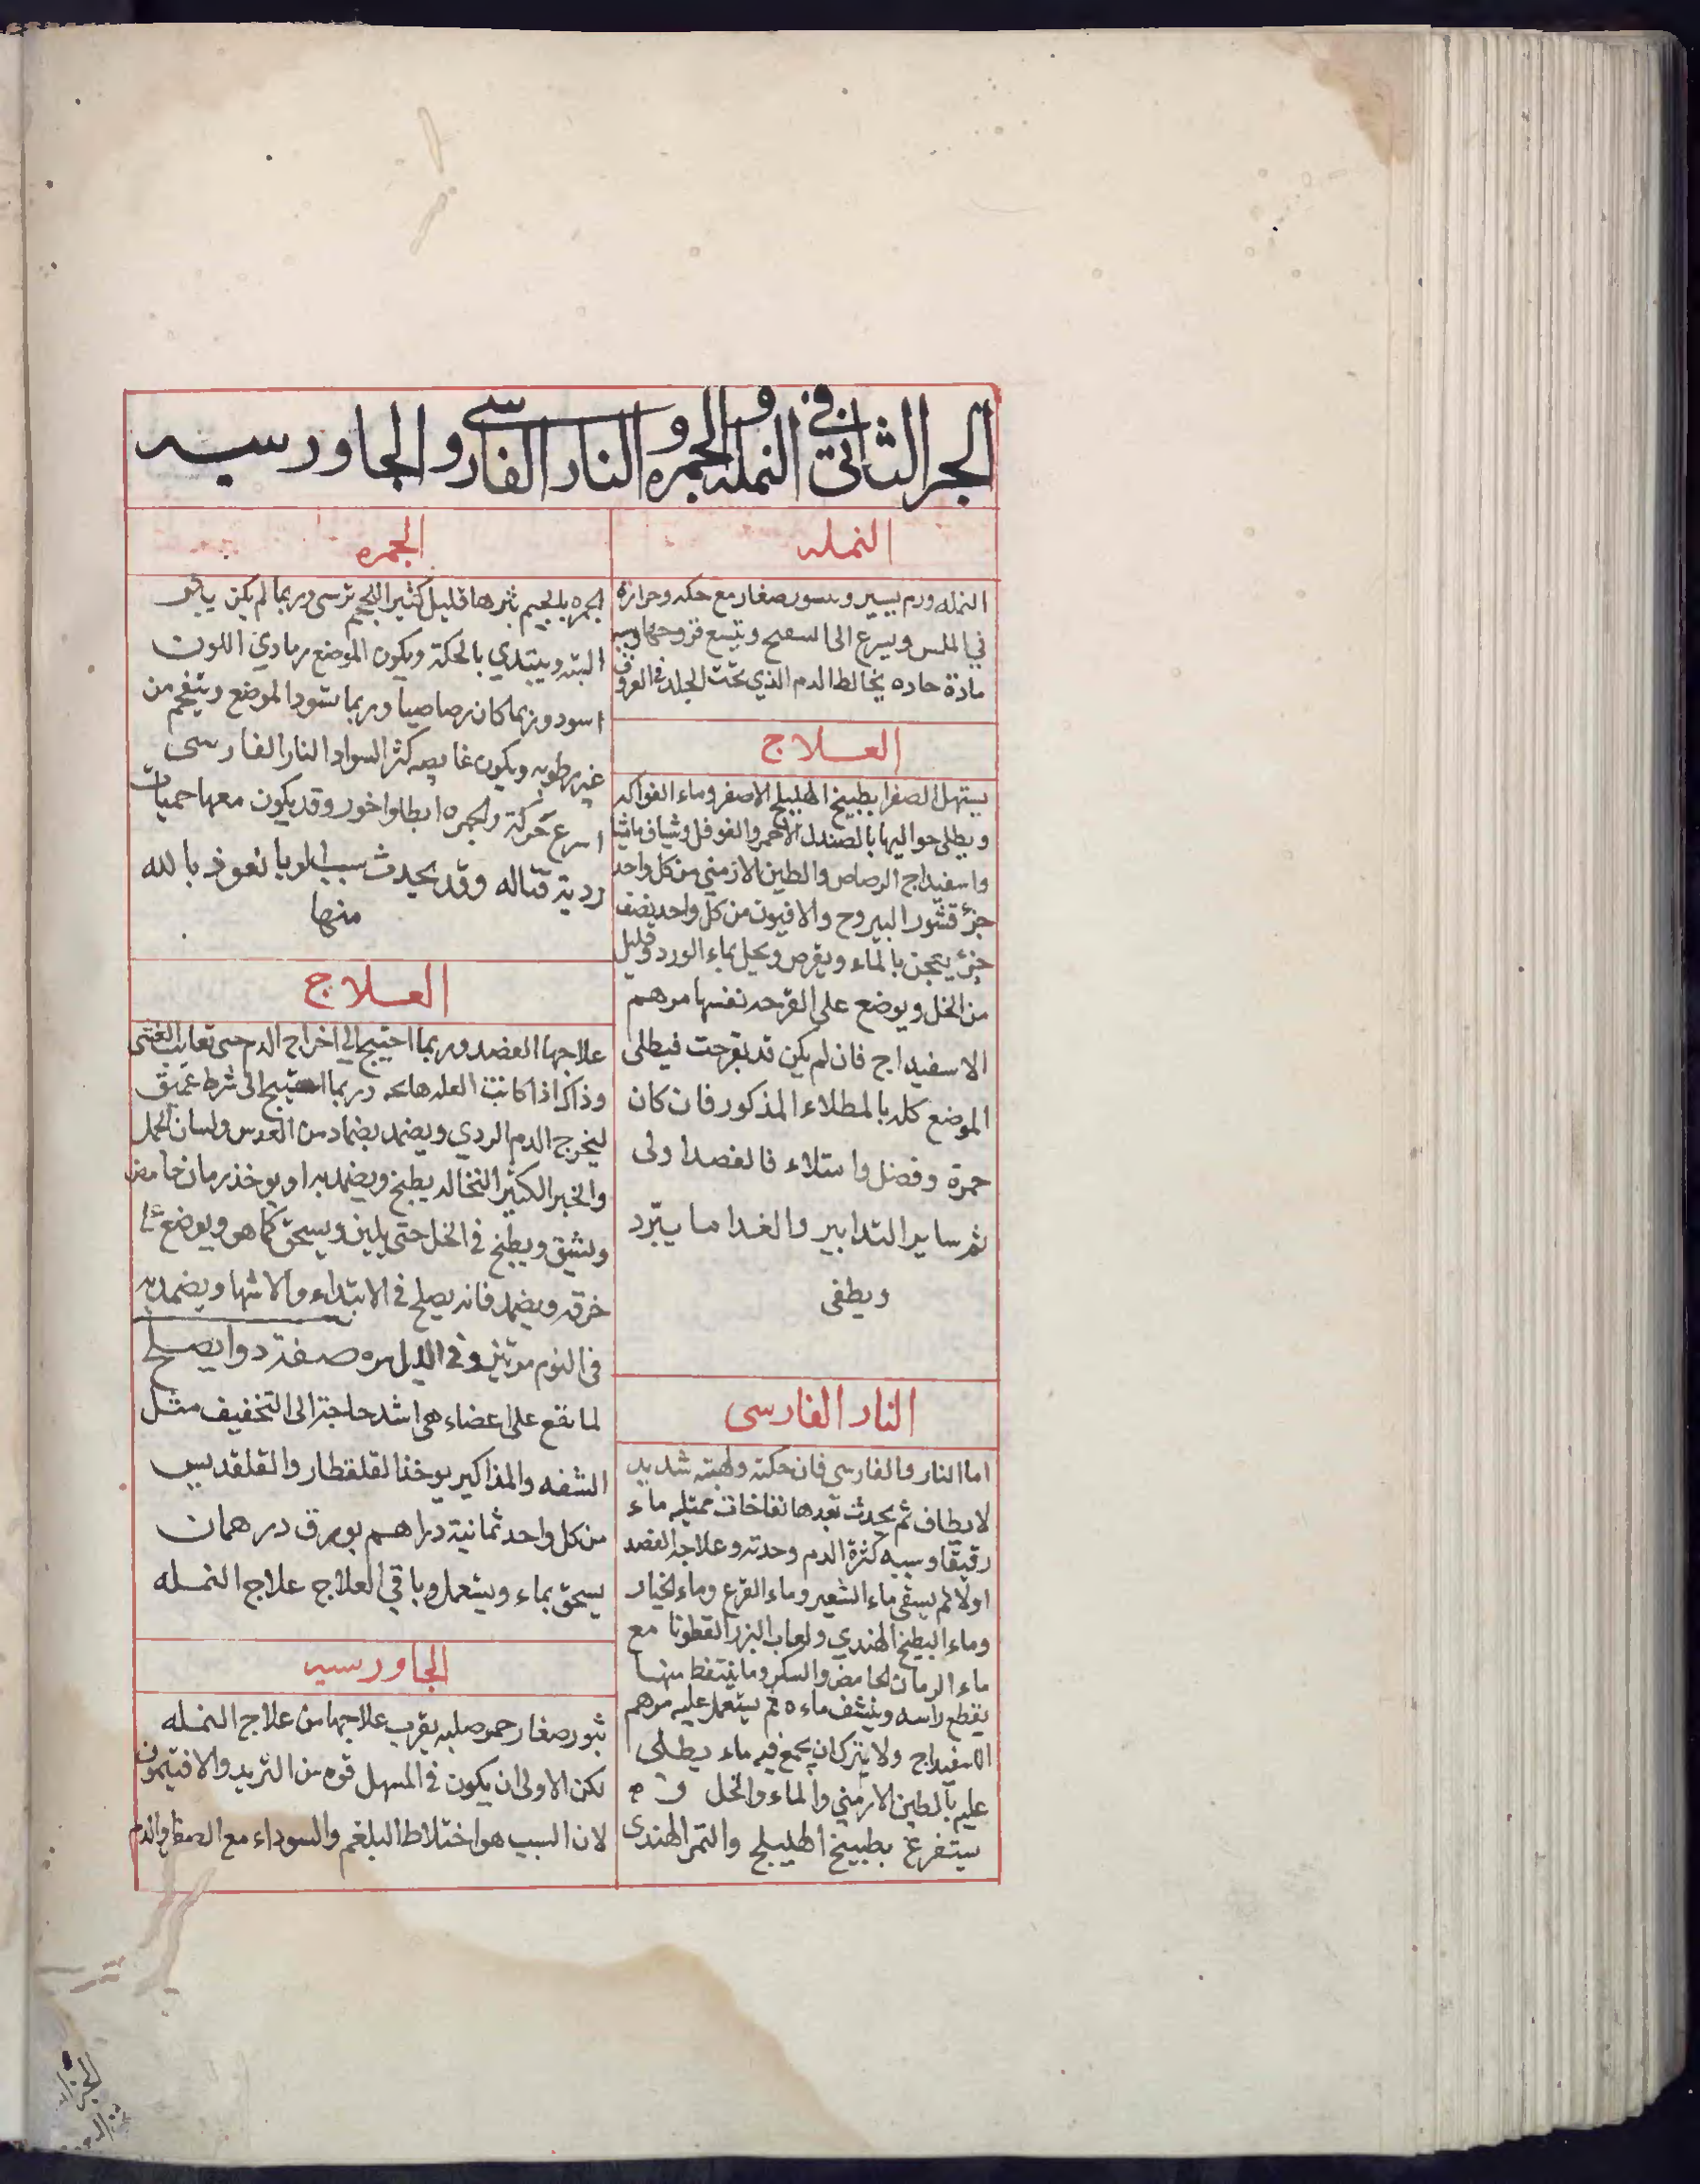 الجز الثاني في النمله والجمره والنار الفارسي والجاورسيه
النمله
النمله ورم يسير وبثور صغار مع حكه وحرارة
في الملس ويسرع الى السعي ويتسع قروحها وسببه
مادة حاده يخالط الدم الذي تحت الجلد في العروق
العلاج
يستهل الصفرا بطبيخ الهليلج الاصفر وماء الفواكه
ويطلى حواليها بالصندل الاحمر والفوفل وشياف ماميثا
واسفيداج الرصاص والطين الارمني من كل واحد
جزؤ قشور اليبروح والافيون من كل واحد نصف
جزؤ يعجن بالماء ويقرص ويحل بماء الورد وقليل
من الخل ويوضع على القرحه نفسها مرهم
الاسفيداج فان لم يكن قد تقرحت فيطلى
الموضع كله بالمطلاء المذكور فان كان
حمرة وفضل وامتلاء فالفصد اولى
ثم ساير التدابير والغدا ما يبرد
ويطفى
النار الفارسى
اما النار والفارسى فان حكته ولهبته شديد
لا يطاف ثم يحدث بعدها نفاخات ممتليه ماء
رقيقا وسببه كثرة الدم وحدته وعلاجه الفصد
اولا ثم يسقى ماء الشعير وماء القرع وماء الخيار
وماء البطيخ الهندي ولعاب البزر القطونا مع
ماء الرمان الحامض والسكر وما ينتفط منها
يقطع راسه وينشف ماءه ثم يستعمل عليه مرهم
الاسفيداج ولا يترك ان يجمع فيه ماء يطلى
عليه بالطين الارمني والماء والخل
يستفرغ بطبيخ الهليلج والتمر الهندى
الجمره
الجمره بالجيم بثرها قليل كثير اللحم ترسي وربما لم يكن بثر
البته ويبتدي بالحكة ويكون الموضع رمادي اللون
اسود وربما كان رصاصيا وربما سود الموضع ويتفحم من
غير رطوبه ويكون غايصه كثر السواد النار الفارسى
اسرع حركة والجمره ابطا واخور وقد يكون معها حميات
ردية قتاله وقد يحدث بسبب الوبا نعوذ بالله
منها
العلاج
علاجها الفصد وربما احتيج الى اخراج الدم حتى تقارب الغشى
وذاك اذا كانت العله هايجه وربما احتيج الى شرط عميق
ليخرج الدم الردي ويضمد بضماد من العدس ولسان الحمل
والخبز الكثير النخاله يطبخ ويضمد به او يوخذ رمان حامض
ويشق ويطبخ في الخل حتى يلين ويسحق كما هو ويوضع على
خرقه ويضمد فانه يصلح في الابتداء والانتها ويضمد به
في اليوم مرتين وفي الليل مره صفة دوا يصلح
لما تقع على اعضاء هي اشد حاجة الى التخفيف مثل
الشفه والمذاكير يوخذ القلقطار والقلقديس
من كل واحد ثمانية دراهم بورق درهمان
يسحق بماء ويستعمل وباقي العلاج علاج النمله
الجاورسيه
بثور صغار حمر صلبه يقرب علاجها من علاج النمله
لكن الاولى ان يكون في المسهل قوه من التربد والافتيمون
لان السبب هو اختلاط البلغم والسوداء مع الصفرا والدم